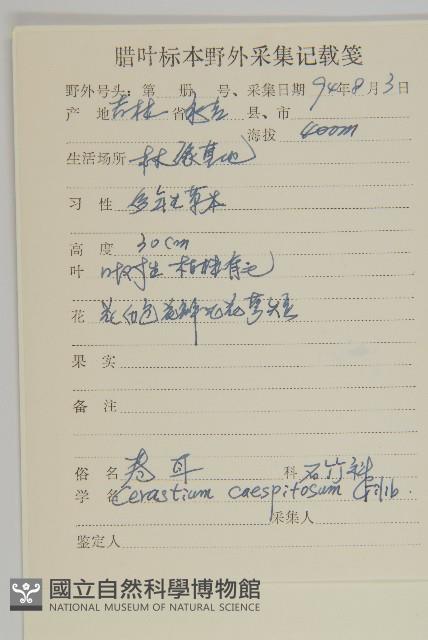 腊叶标本野外采集记载笺
野外号头：第 册 号、采集日期 94年8月3日
产 地 吉林 省 永吉 县、市
海拔 400m
生活场所 林 基地
习 性 多年生草本
高 度 30cm
叶 叶对生 有毛
花 花白色 花瓣
果 实
备 注
俗 名 卷耳 科 石竹科
学 名 Cerastium caespitosum Gilib.
采集人
鉴定人
國立自然科學博物館
NATIONAL MUSEUM OF NATURAL SCIENCE